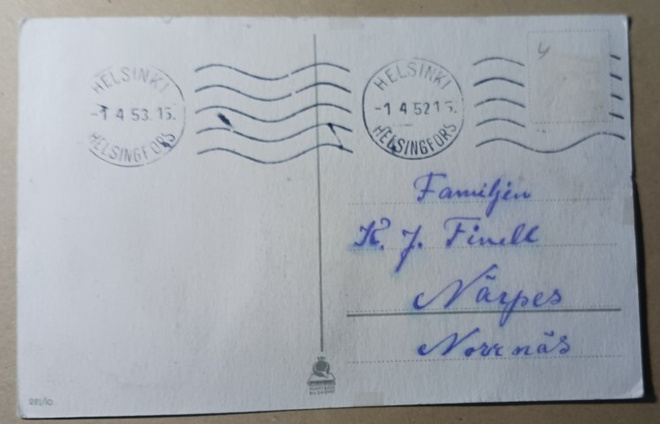 HELSINKI
-1 4 53.15.
HELSINGFORS
HELSINKI
-1 4 52 15.
HELSINGFORS
4
Familjen
K. J. Finell
Närpes
Norrnäs
281/10